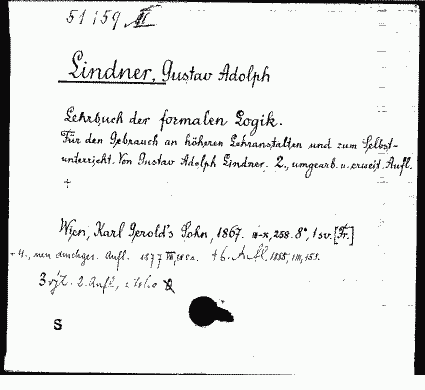 51159 III
Lindner, Gustav Adolph
Lehrbuch der formalen Logik.
Für den Gebrauch an höheren Lehranstalten und zum Selbst-
unterricht. Von Gustav Adolph Lindner. 2., umgearb. u. erweit. Aufl.
+
Wien, Karl Gerold's Sohn, 1867. 258. 8°, 1 sv. [Fr.]
+ 4., neu durchges. Aufl. 1877
+ 6. Aufl.
3 výt. 2. Aufl.,
S